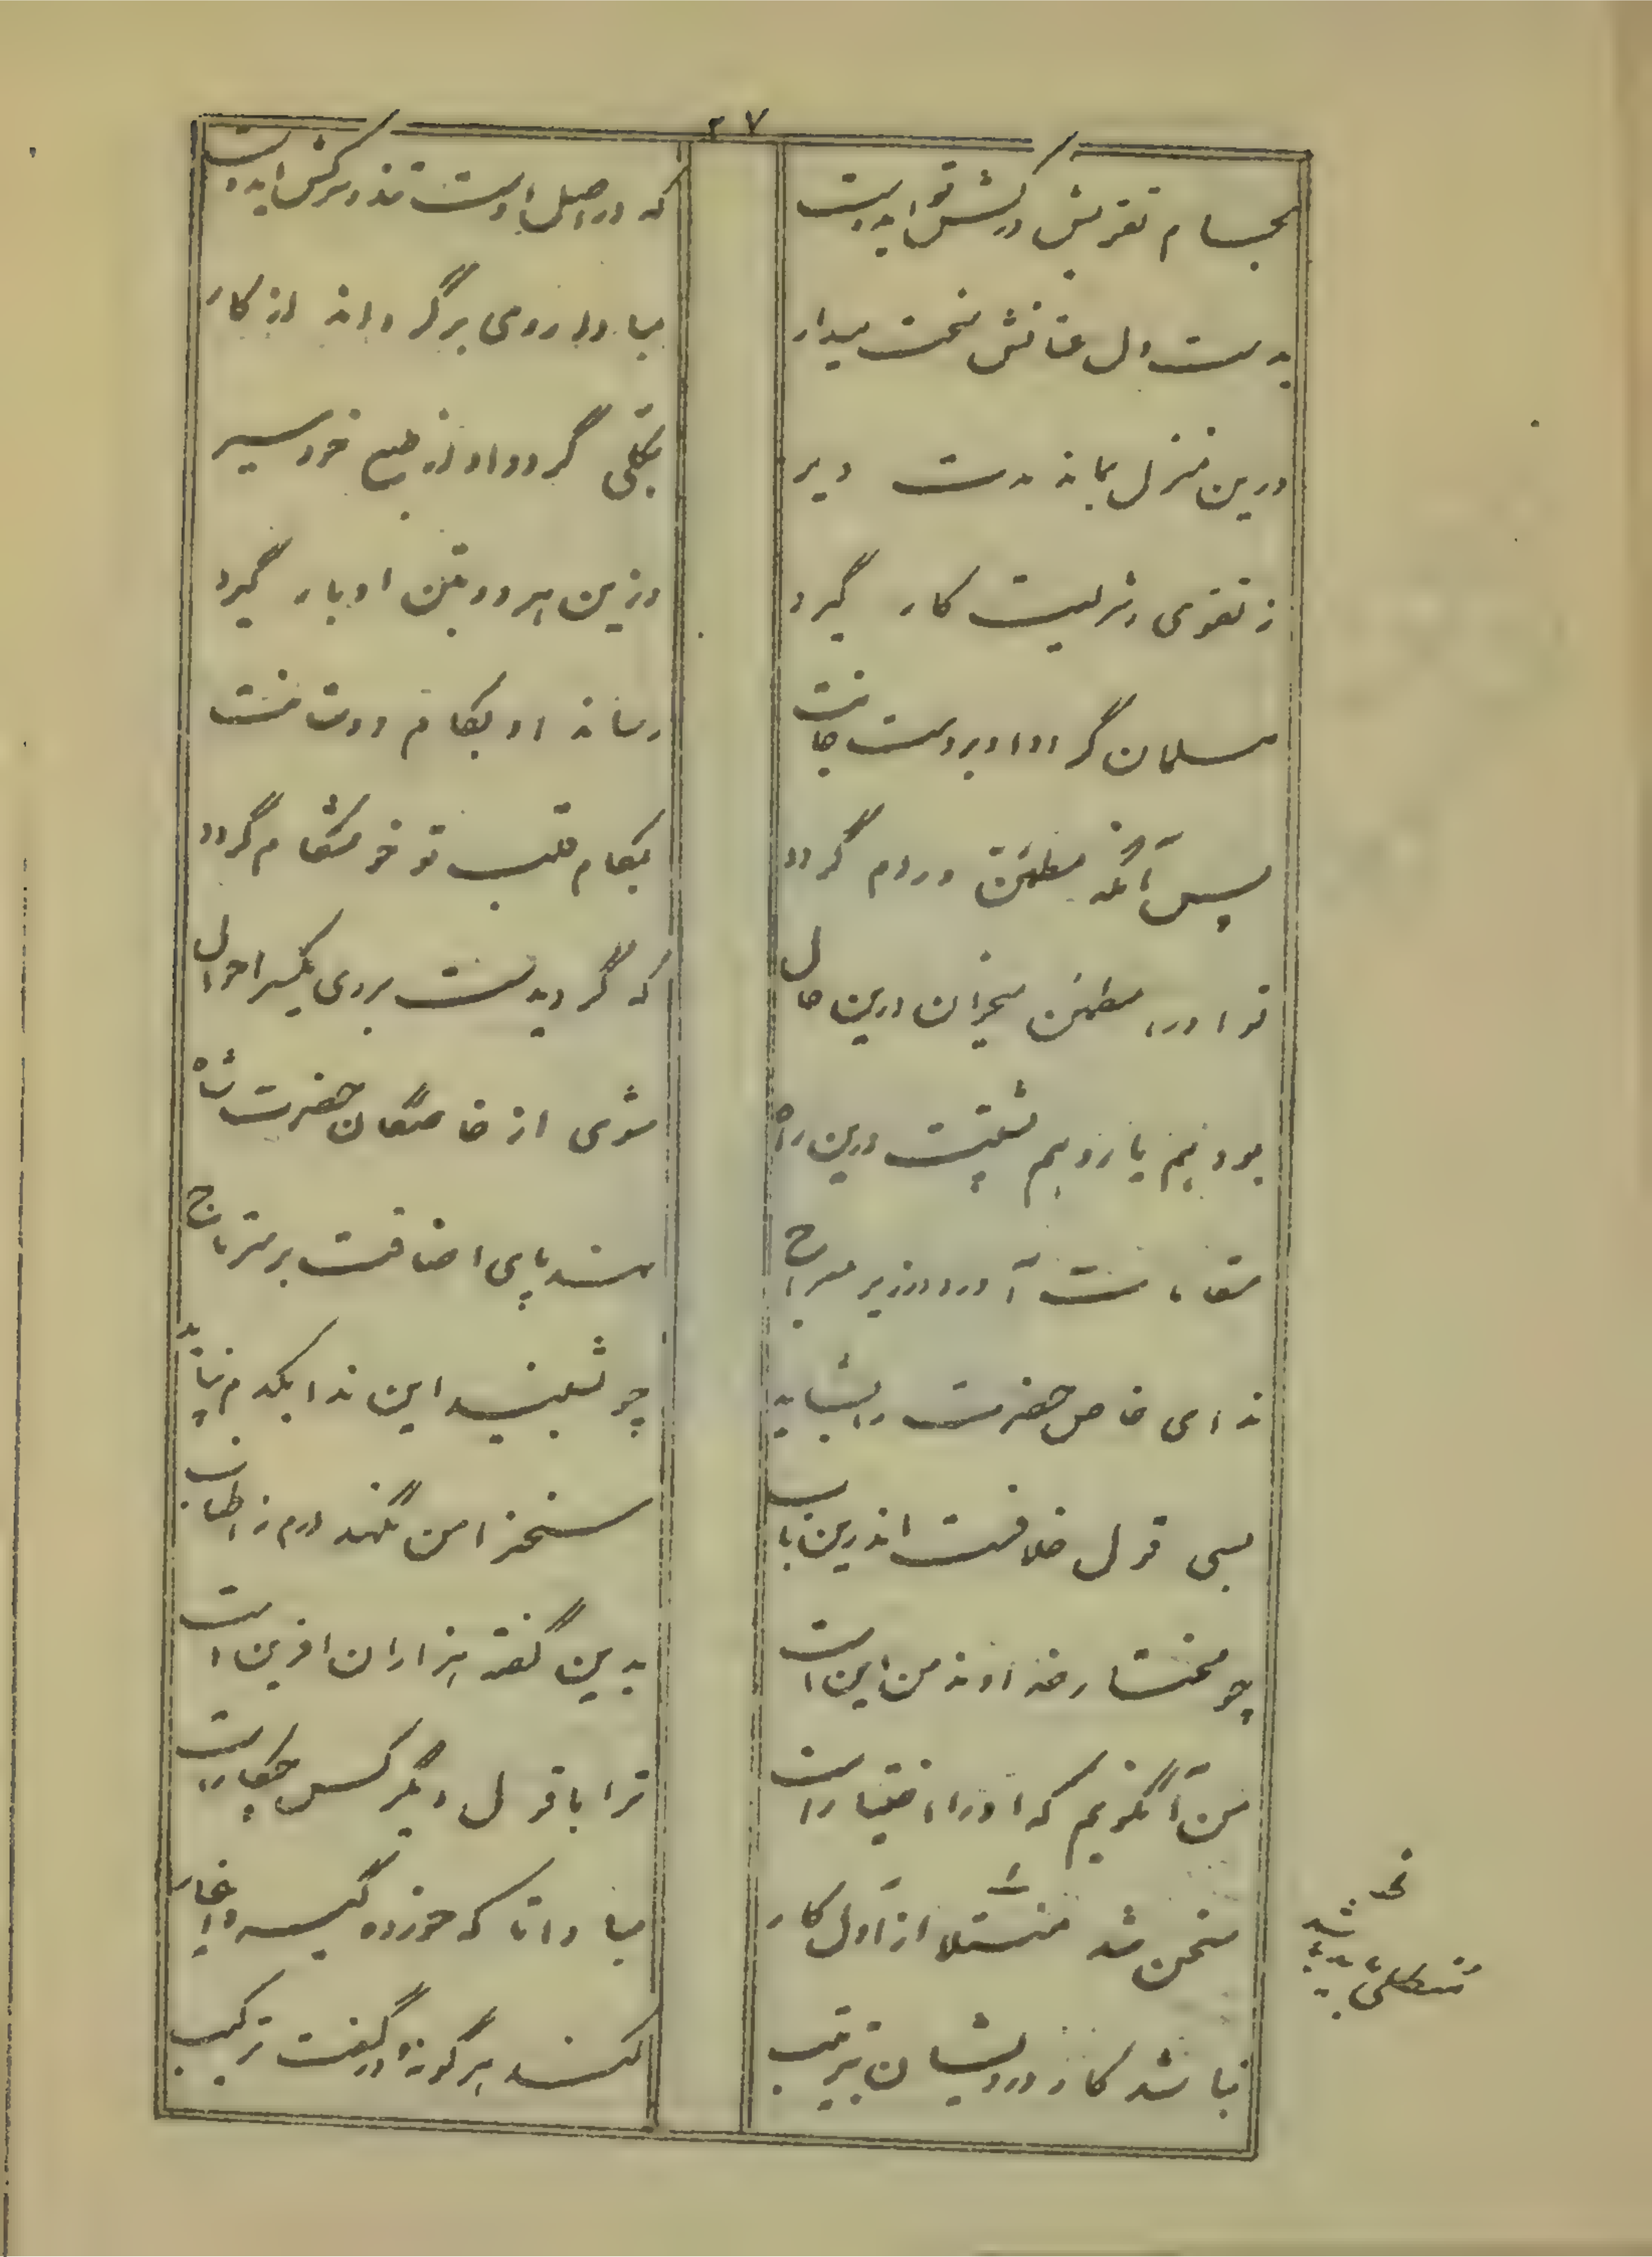 ۲۷
بجام تقویش درکش تو ای دوست که در اصل او ست تند و سرکش ای دوست
بدست دل عنانش سخت میدار مبادا روی برگرداند از کار
درین منزل بماند مدت دیر بکلی گردد او از طبع خود سیر
ز تقوی و شریعت کار گیرد وزین هر دو بتن او بار گیرد
مسلمان گردد او بر دست جانت رساند او بکام دوستانت
پس آنگه مطمئن در دم گردد بکام قلب تو خوشکام گردد
تو او را مطمئن میخوان درین حال که گردیدست بروی یکسر احوال
بود نیم یا رویم شیبت درین راه شوی از خاصگان حضرت شاه
مقامات آورد در زیر معراج نهد پای اضافت بر سر تاج
ندای خاص حضرت را بشاید چو بشنید این ندا یکدم نپاید
بسی قول خلافست اندرین باب سخنرا من نگهدارم ز اطناب
چو مختار خداوند من این است بدین گفته هزاران آفرین است
من آن گویم که او را اختیار است ترا با قول دیگر کس چکار است
سخن شد منشلا از اول کار مبادا تا که خورده گیرد اغیار
نباشد کار درویشان بترتیب کند هر گونه در گفت ترکیب